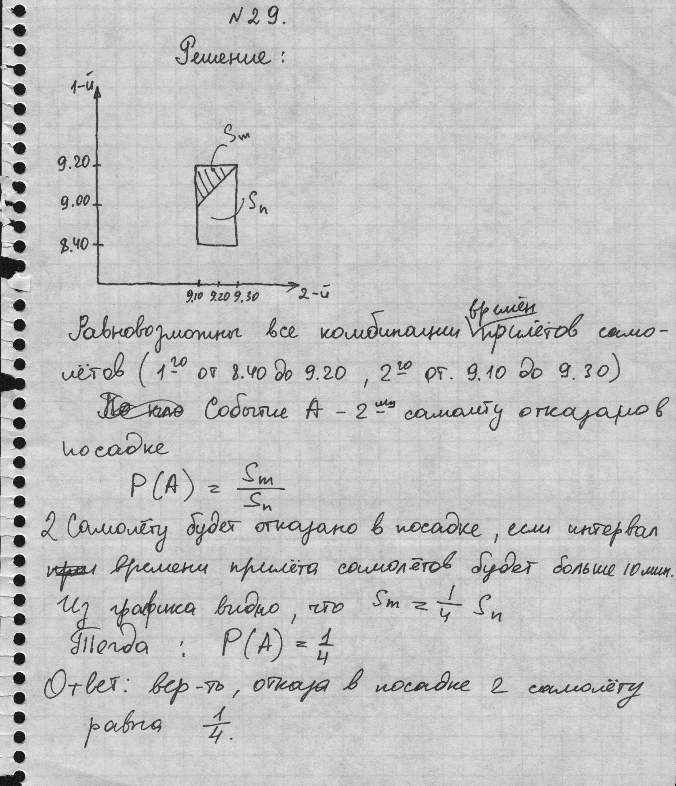 №29.
Решение:
1-й
9.20
9.00
8.40
Sm
Sn
9.10 9.20 9.30 2-й
времён
Равновозможны все комбинации прилётов само-
лётов (1го от 8.40 до 9.20, 2го от. 9.10 до 9.30)
Событие А - 2му самолёту отказано в
посадке
P(A) = Sm/Sn
2 Самолёту будет отказано в посадке, если интервал
времени прилёта самолётов будет больше 10 мин.
Из графика видно, что Sm = 1/4 Sn
Тогда : P(A) = 1/4
Ответ: вер-ть, отказа в посадке 2 самолёту
равна 1/4.